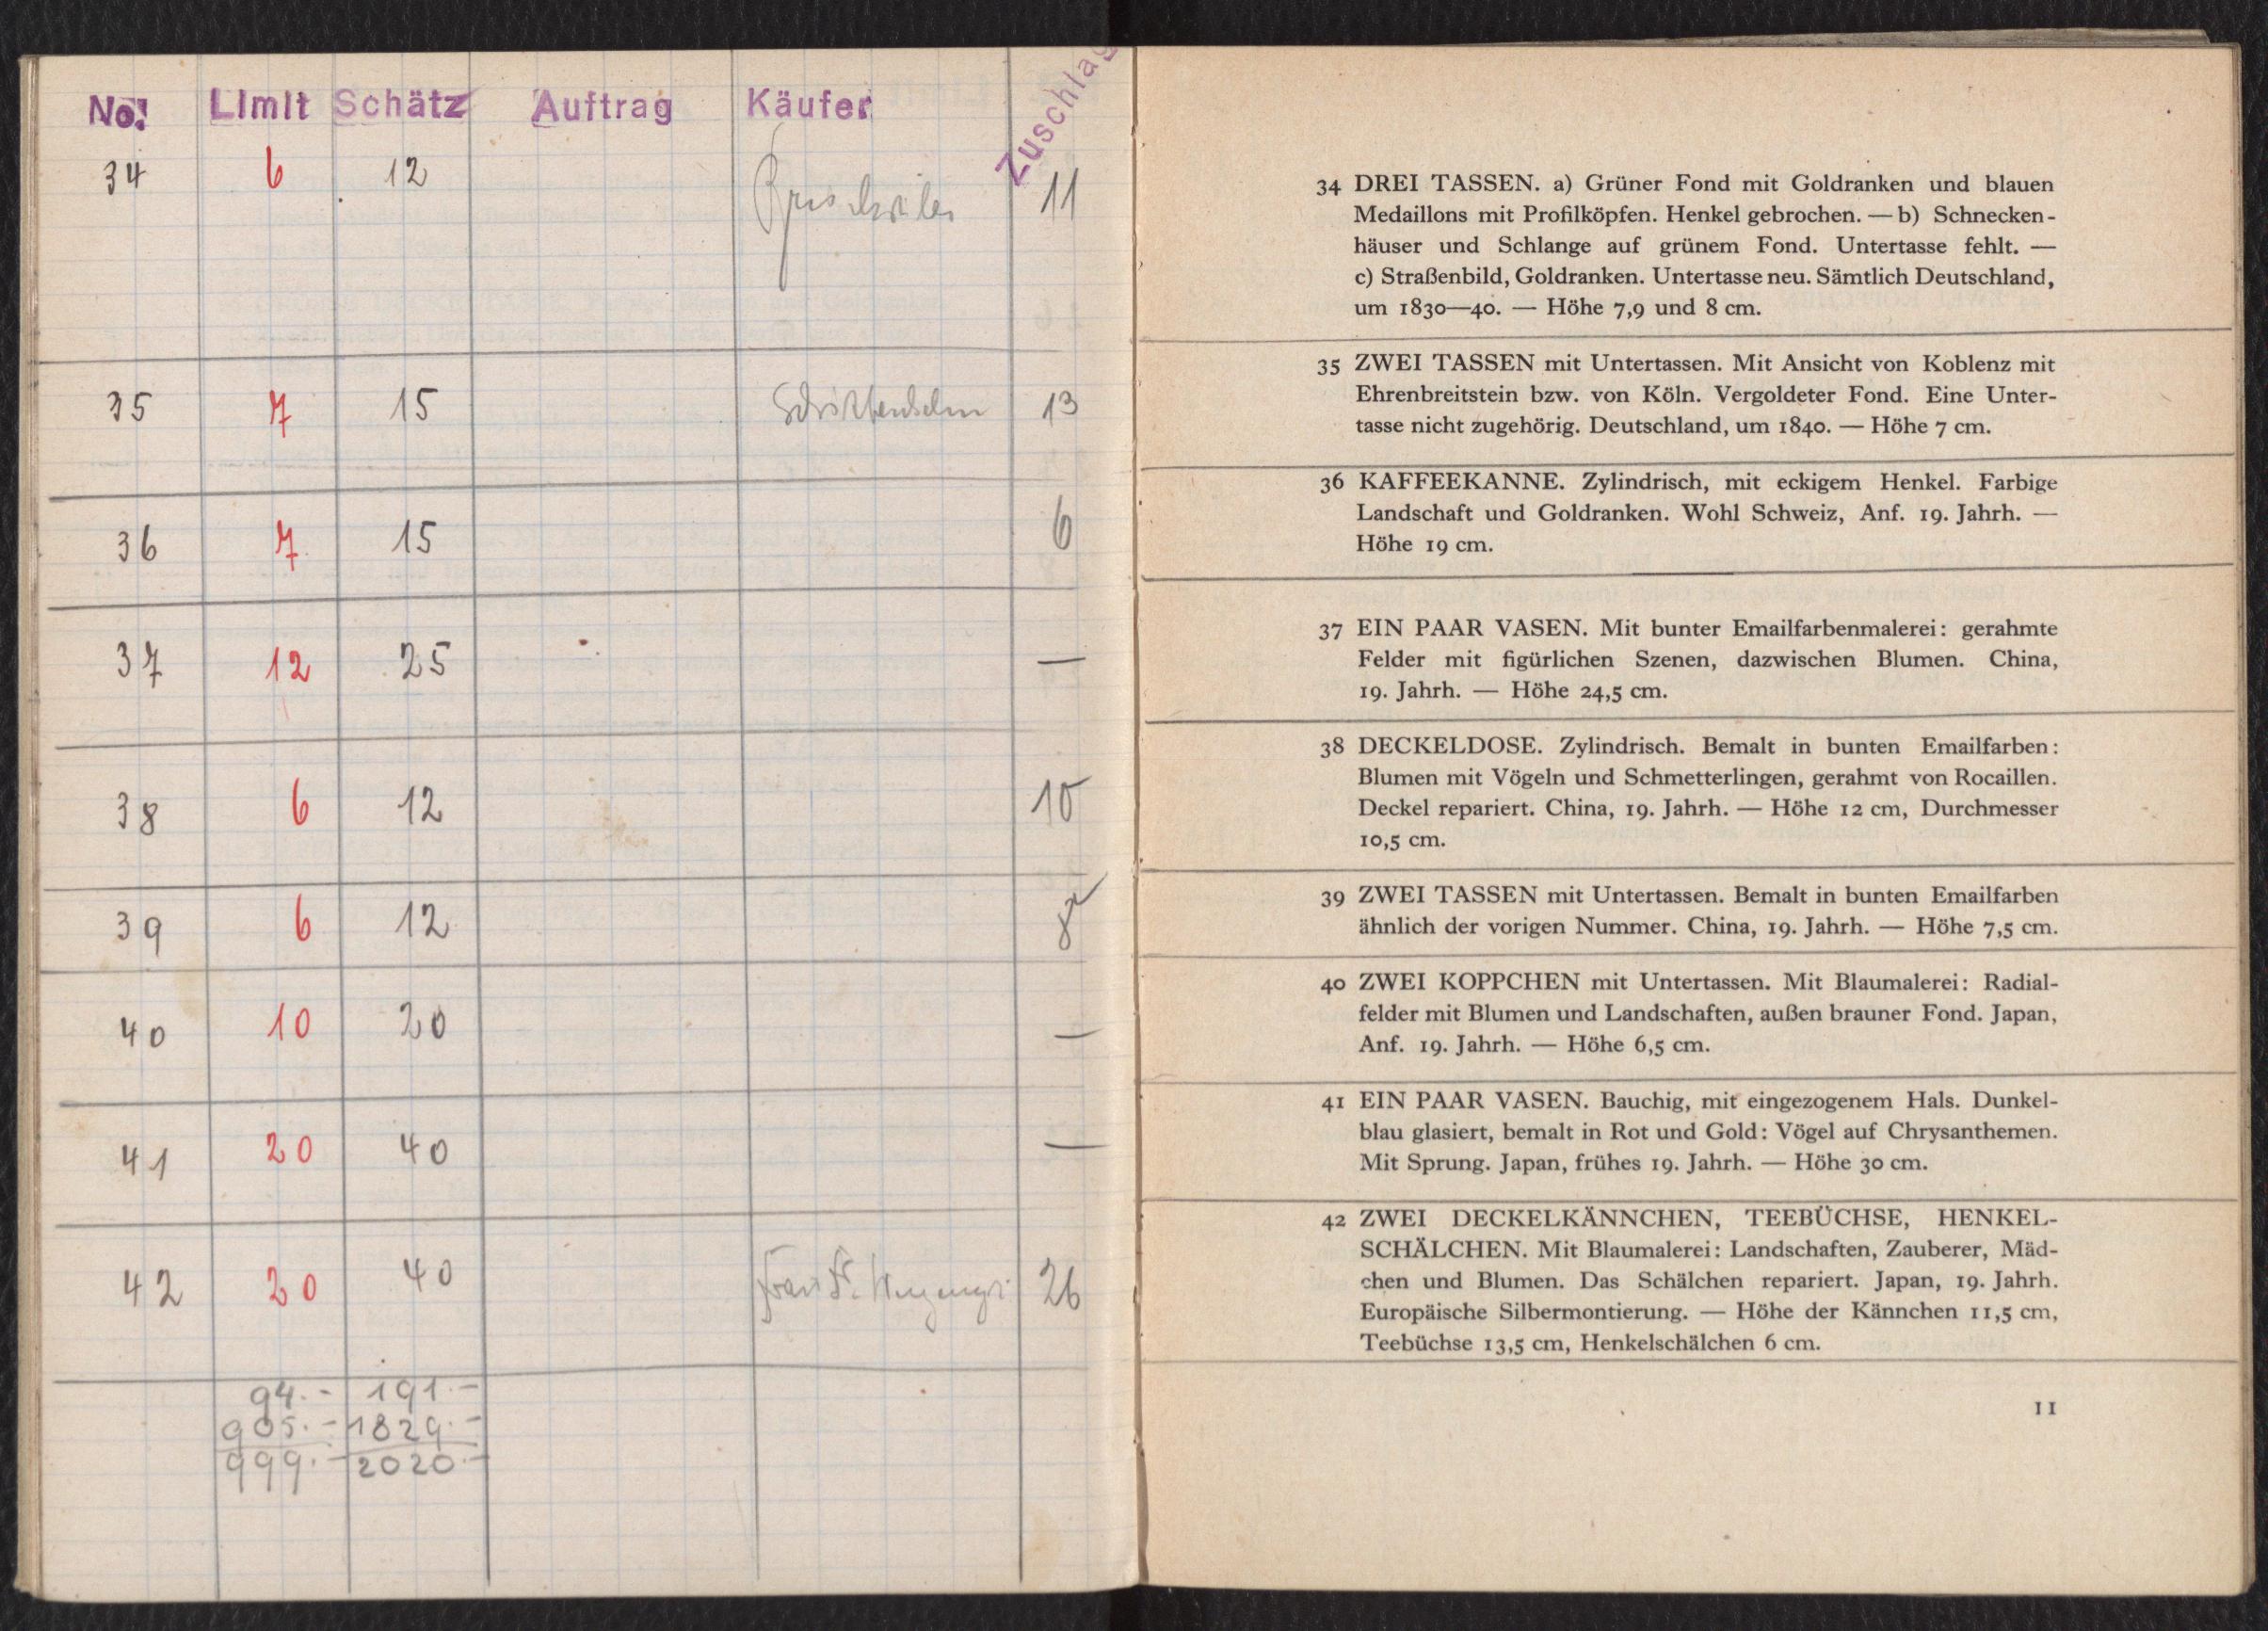 No. Limit Schätz Auftrag Käufer Zuschlag
34 6 12 11
35 7 15 13
36 7 15 6
37 12 25 —
38 6 12 10
39 6 12 8
40 10 20 —
41 20 40 —
42 20 40 26
94.- 191.-
905.- 1829.-
999.- 2020.-
34 DREI TASSEN. a) Grüner Fond mit Goldranken und blauen
Medaillons mit Profilköpfen. Henkel gebrochen. — b) Schnecken-
häuser und Schlange auf grünem Fond. Untertasse fehlt. —
c) Straßenbild, Goldranken. Untertasse neu. Sämtlich Deutschland,
um 1830—40. — Höhe 7,9 und 8 cm.
35 ZWEI TASSEN mit Untertassen. Mit Ansicht von Koblenz mit
Ehrenbreitstein bzw. von Köln. Vergoldeter Fond. Eine Unter-
tasse nicht zugehörig. Deutschland, um 1840. — Höhe 7 cm.
36 KAFFEEKANNE. Zylindrisch, mit eckigem Henkel. Farbige
Landschaft und Goldranken. Wohl Schweiz, Anf. 19. Jahrh. —
Höhe 19 cm.
37 EIN PAAR VASEN. Mit bunter Emailfarbenmalerei: gerahmte
Felder mit figürlichen Szenen, dazwischen Blumen. China,
19. Jahrh. — Höhe 24,5 cm.
38 DECKELDOSE. Zylindrisch. Bemalt in bunten Emailfarben:
Blumen mit Vögeln und Schmetterlingen, gerahmt von Rocaillen.
Deckel repariert. China, 19. Jahrh. — Höhe 12 cm, Durchmesser
10,5 cm.
39 ZWEI TASSEN mit Untertassen. Bemalt in bunten Emailfarben
ähnlich der vorigen Nummer. China, 19. Jahrh. — Höhe 7,5 cm.
40 ZWEI KOPPCHEN mit Untertassen. Mit Blaumalerei: Radial-
felder mit Blumen und Landschaften, außen brauner Fond. Japan,
Anf. 19. Jahrh. — Höhe 6,5 cm.
41 EIN PAAR VASEN. Bauchig, mit eingezogenem Hals. Dunkel-
blau glasiert, bemalt in Rot und Gold: Vögel auf Chrysanthemen.
Mit Sprung. Japan, frühes 19. Jahrh. — Höhe 30 cm.
42 ZWEI DECKELKÄNNCHEN, TEEBÜCHSE, HENKEL-
SCHÄLCHEN. Mit Blaumalerei: Landschaften, Zauberer, Mäd-
chen und Blumen. Das Schälchen repariert. Japan, 19. Jahrh.
Europäische Silbermontierung. — Höhe der Kännchen 11,5 cm,
Teebüchse 13,5 cm, Henkelschälchen 6 cm.
11